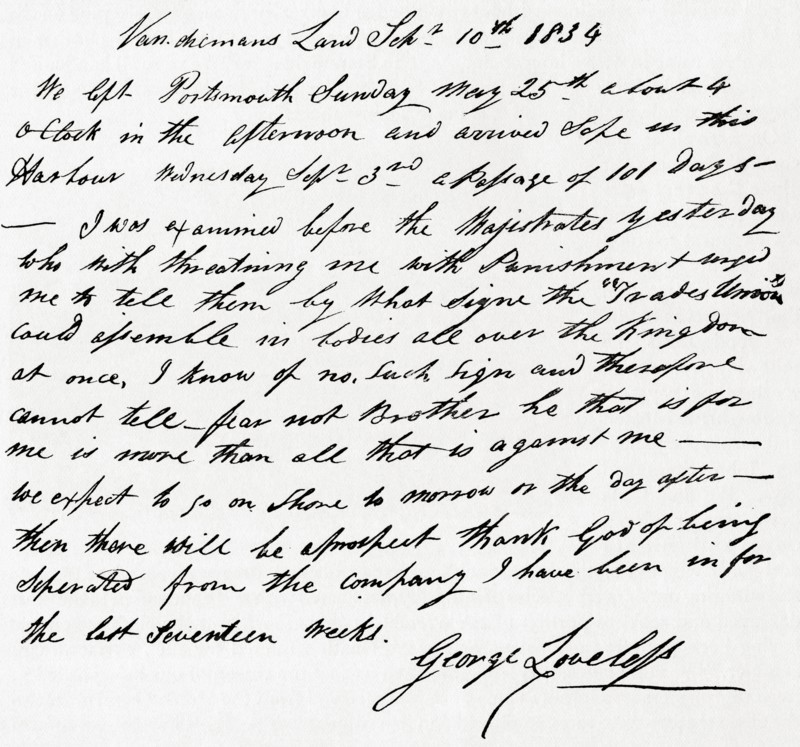 Van diemans Land Sepr 10th 1834
We left Portsmouth Sunday May 25th about 4
o Clock in the afternoon and arrived Safe in this
Harbour Wednesday Sepr 3rd a Passage of 101 Days—
— I was examined before the Majistrates yesterday
who with threatning me with Punishment urged
me to tell them by what Signe the "Trades Unions
could assemble in bodies all over the Kingdom
at once, I know of no. Such, Sign and therefore
cannot tell — fear not Brother he that is for
me is more than all that is against me —
we expect to go on Shore to morrow or the day after —
then there will be a prospect thank God of being
Seperated from the company I have been in for
the last Seventeen weeks.
George Loveless